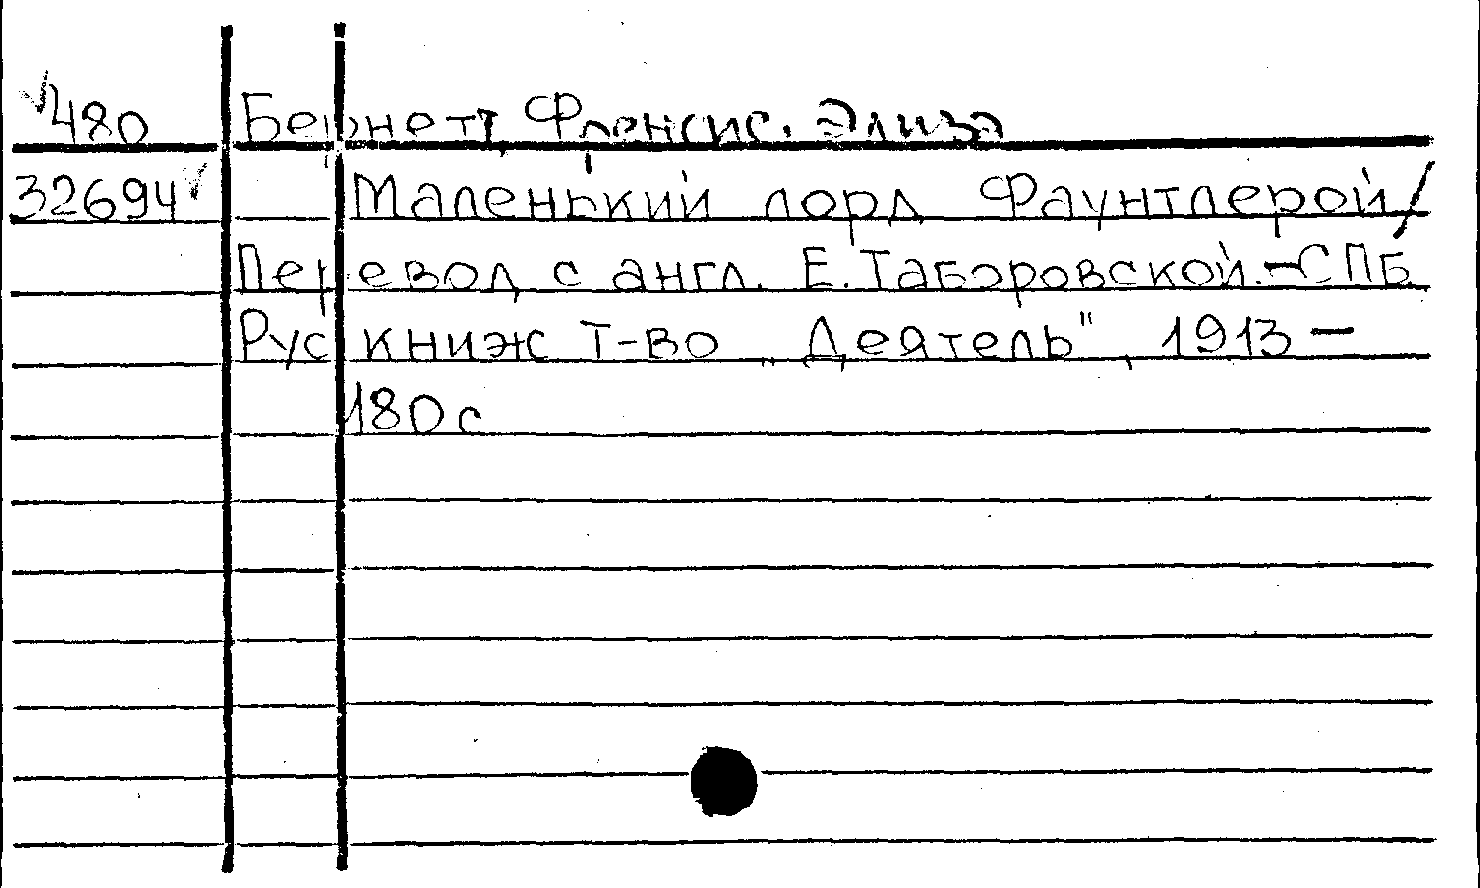 480 Бернетт, Френсис. Элиза
32694 Маленький лорд Фаунтлерой/
Перевод с англ. Е. Таборовской. - СПБ.
Рус книж т-во „Деятель", 1913 -
180 с